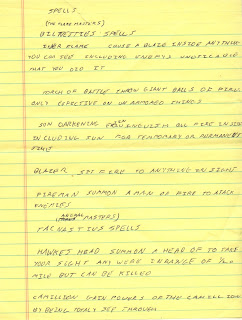 SPELLS
(THE FLARE MASTERS)
SPELLS
FLAME CAUSE A BLAZE INSIDE ANYTHING
YOU CAN SEE INCLUDING ENEMYS
THAT YOU DID IT
TORCH OF BATTLE THROW GIANT BALLS OF FIRE
ONLY EFFECTIVE ON UNARMORED THINGS
SON DARKENING ALL FIRE IN SIDE
INCLUDING SUN FOR TEMPORARY OR PERMANENT
BLAZER SPIT FIRE TO ANYTHING IN SIGHT
FIREMAN SUMMON A MAN OF FIRE TO ATACK
ENEMIES
(ANIMAL MASTERS)
SPELLS
HAWKES HEAD SUMMON A HEAD OF TO TAKE
YOUR SIGHT ANY WERE IN RANGE OF
MILE BUT CAN BE KILLED
CAMILLION GAIN POWERS OF THE CAMILLION
BY BEING TOTALY SEE THROUGH